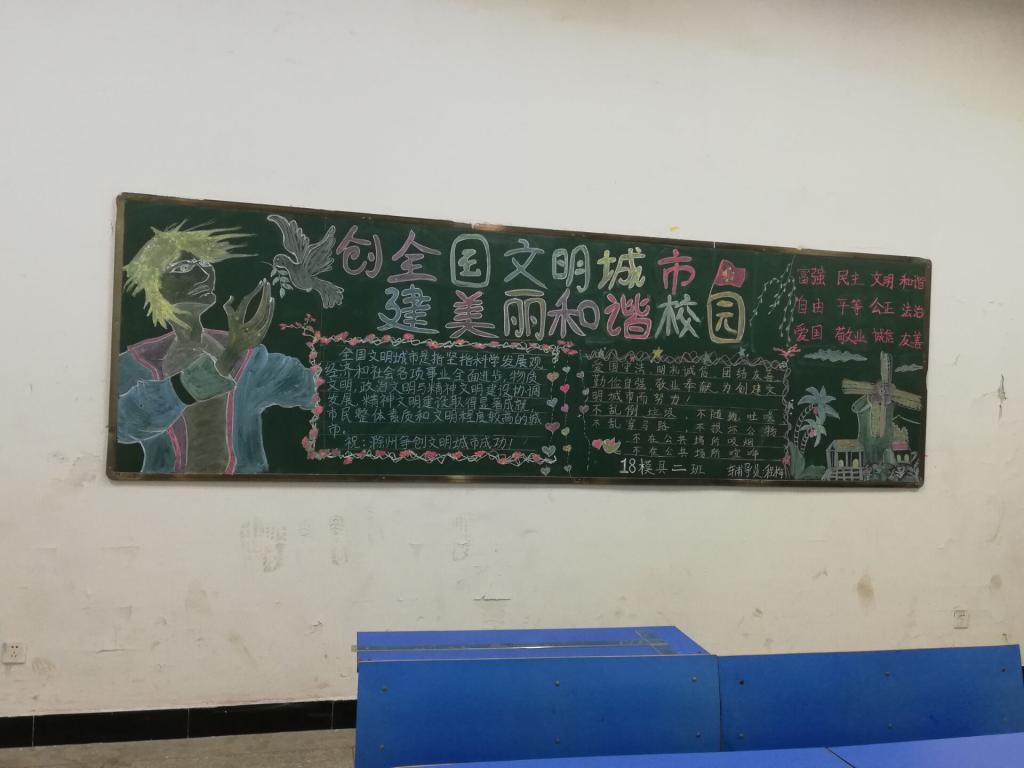 创全国文明城市
建美丽和谐校园
富强 民主 文明 和谐
自由 平等 公正 法治
爱国 敬业 诚信 友善
全国文明城市是指坚指科学发展观
经济和社会各项事业全面进步,物质
文明,政治文明与精神文明建设协调
发展,精神文明建设取得显著成就,
市民整体素质和文明程度较高的城
市。
祝:滁州争创文明城市成功!
爱国守法 明礼诚信 团结友善
勤俭自强 敬业奉献 为创建文
明城市而努力!
不乱倒垃圾 不随地吐痰
不乱穿马路 不损坏公物
不在公共场所吸烟
不在公共场所喧哗
18模具二班
辅导员:程梅